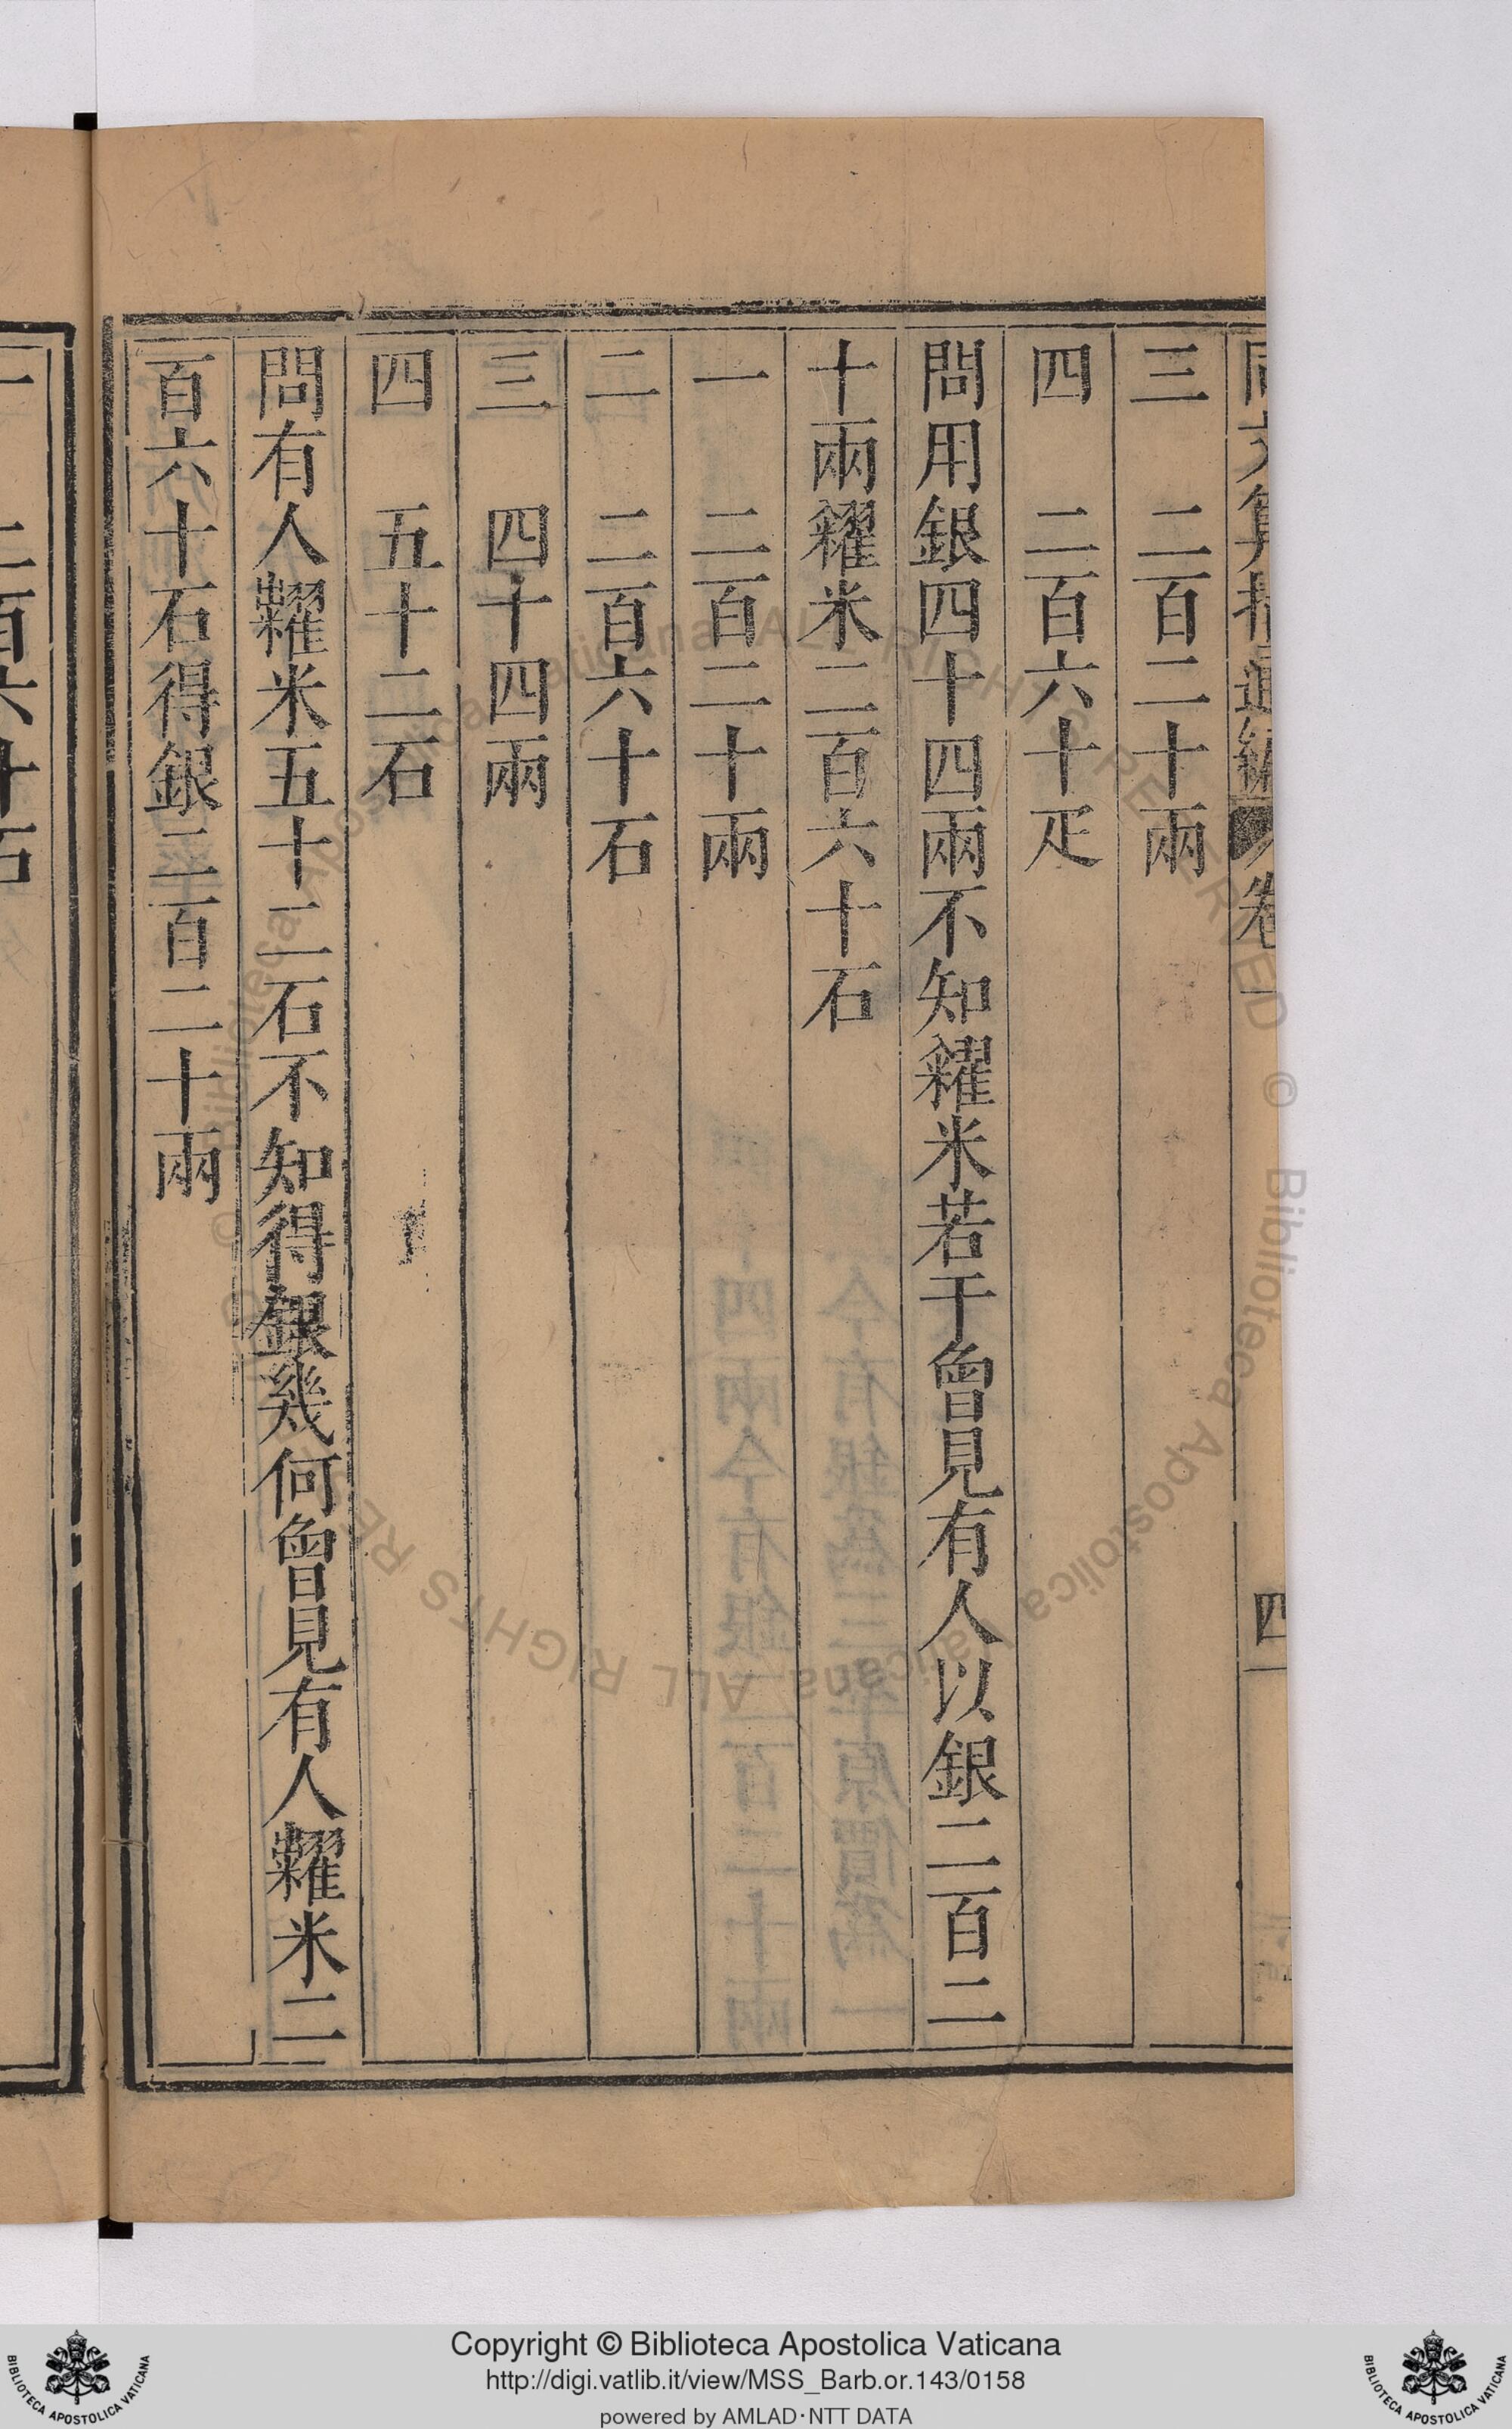 同文算指通編 卷一 四
三 二百二十兩
四 二百六十疋
問用銀四十四兩不知糴米若干曾見有人以銀二百二
十兩糴米二百六十石
一 二百二十兩
二 二百六十石
三 四十四兩
四 五十二石
問有人糶米五十二石不知得銀幾何曾見有人糶米二
百六十石得銀二百二十兩
一 二百六十石
Copyright © Biblioteca Apostolica Vaticana
http://digi.vatlib.it/view/MSS_Barb.or.143/0158
powered by AMLAD·NTT DATA
BIBLIOTECA APOSTOLICA VATICANA
BIBLIOTECA APOSTOLICA VATICANA
© Biblioteca Apostolica Vaticana ALL RIGHTS RESERVED